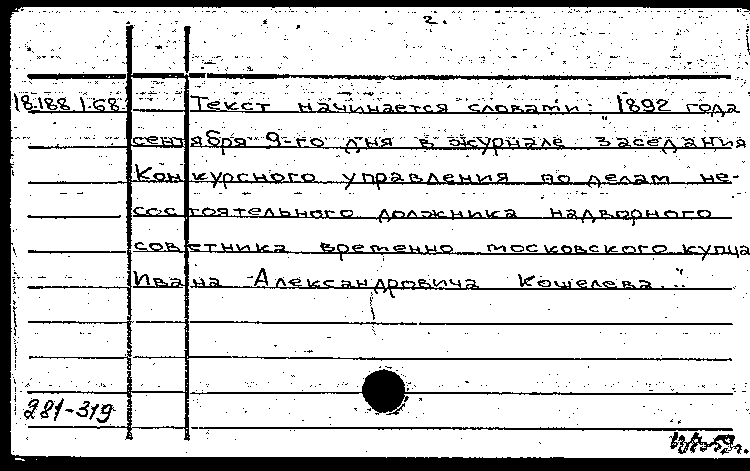 2.
18.188 1.68 Текст начинается словами: 1892 года
сентября 9-го дня в журнале "заседания
Конкурсного управления по делам не-
состоятельного должника надворного
советника временно московского купца
Ивана Александровича Кошелева..."
281-319